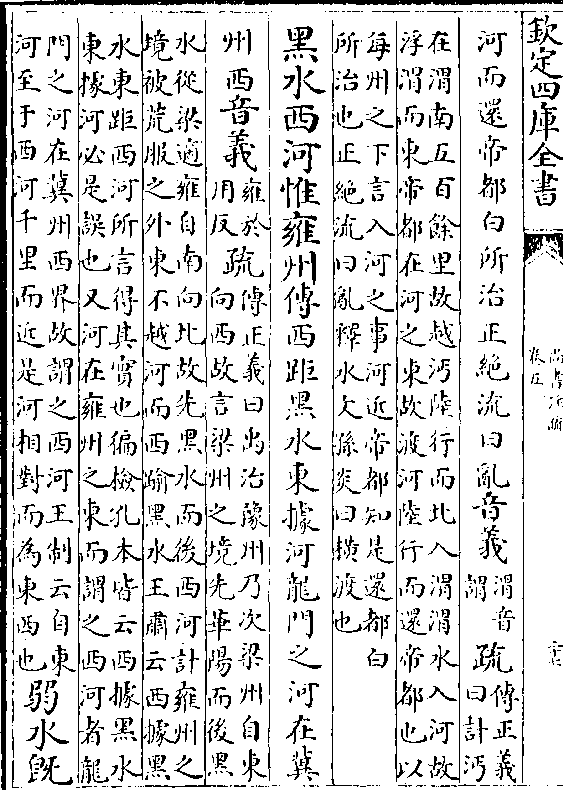 欽定四庫全書
尚書注疏
卷五
河而還帝都白所治正絶流曰亂音義渭音謂疏傳正義曰計沔
在渭南五百餘里故越沔陸行而北入渭渭水入河故
浮渭而東帝都在河之東故渡河陸行而還帝都也以
每州之下言入河之事河近帝都知是還都白
所治也正絶流曰亂釋水文孫炎曰横渡也
黑水西河惟雍州傳西距黑水東據河龍門之河在冀
州西音義雍於用反疏傳正義曰出治豫州乃次梁州自東
向西故言梁州之境先華陽而後黑
水從梁適雍自南向北故先黑水而後西河計雍州之
境被荒服之外東不越河而西踰黑水王肅云西據黑
水東距西河所言得其實也徧檢孔本皆云西據黑水
東據河必是誤也又河在雍州之東而謂之西河者龍
門之河在冀州西界故謂之西河王制云自東
河至于西河千里而近是河相對而為東西也弱水既